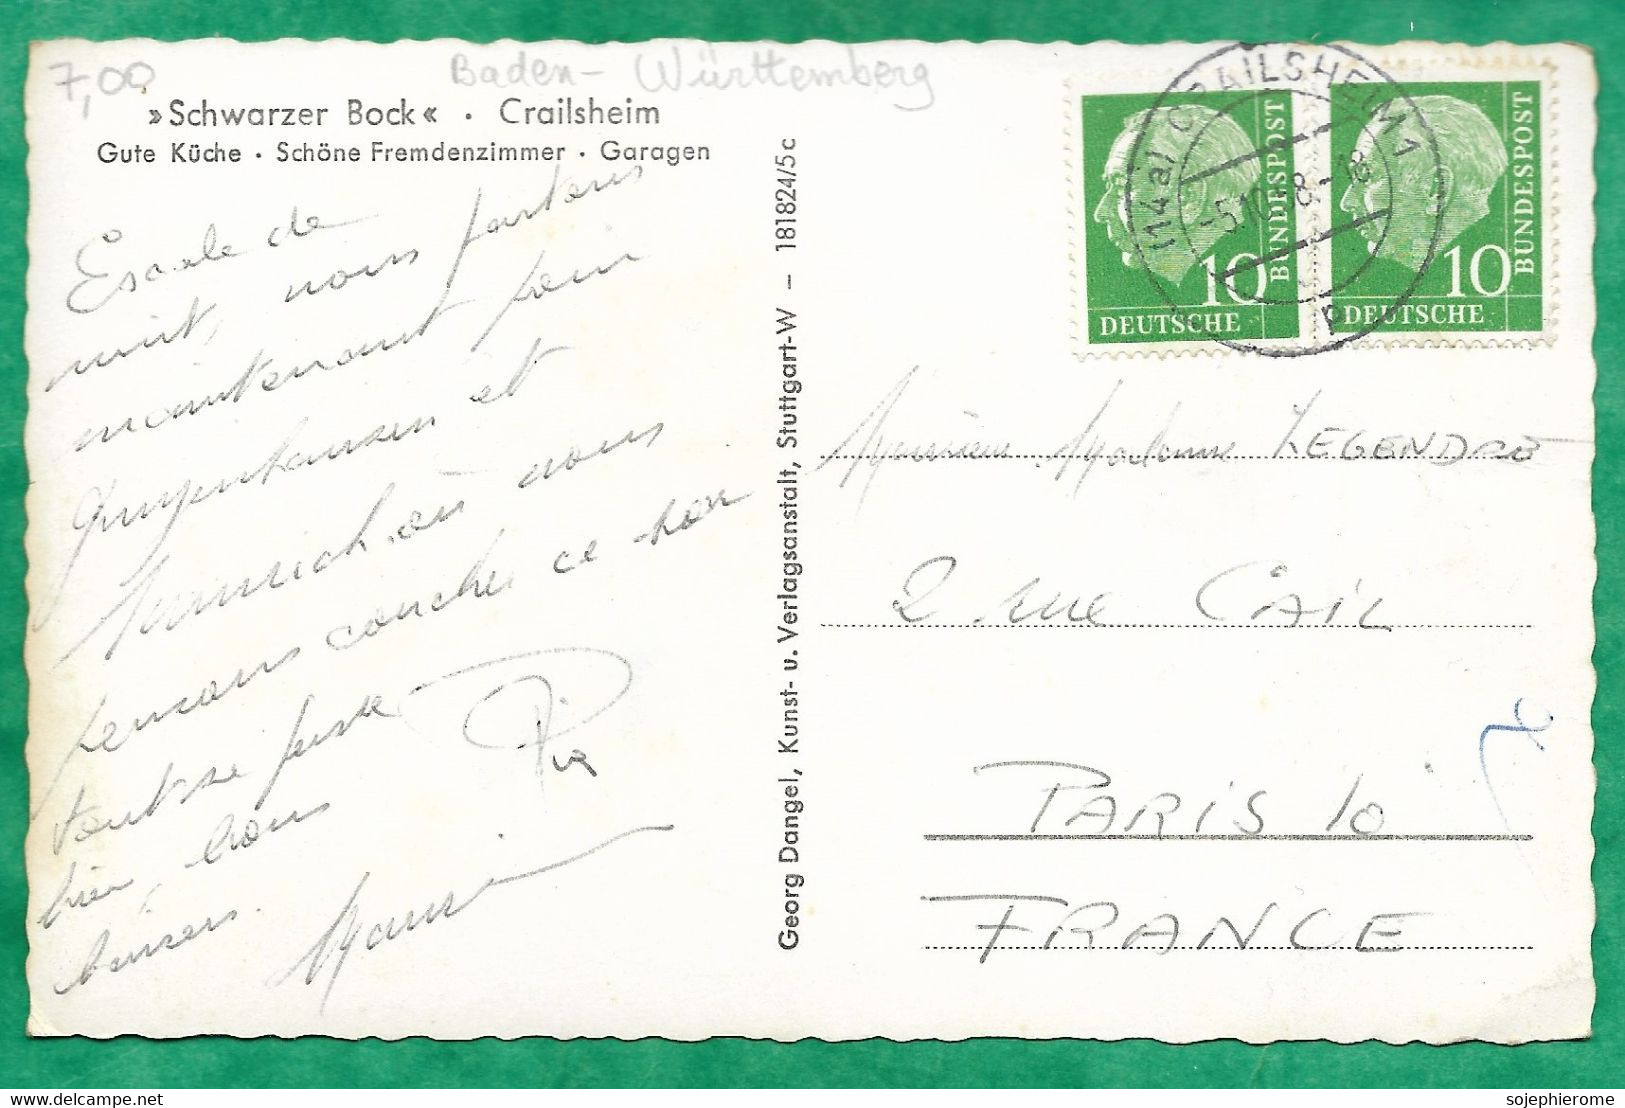 7,00
Baden-Württemberg
»Schwarzer Bock« · Crailsheim
Gute Küche · Schöne Fremdenzimmer · Garagen
Escale de
nuit, nous partons
maintenant pour
et
Munich où nous
pensons coucher ce soir
tout se passe
bien, bons
baisers.
Pia
Georg Dangel, Kunst- u. Verlagsanstalt, Stuttgart-W – 181824/5c
(14a) CRAILSHEIM 1
DEUTSCHE BUNDESPOST 10
DEUTSCHE BUNDESPOST 10
Monsieur Madame LEGENDRE
2 rue CAIL
PARIS 10
FRANCE
sojephierome